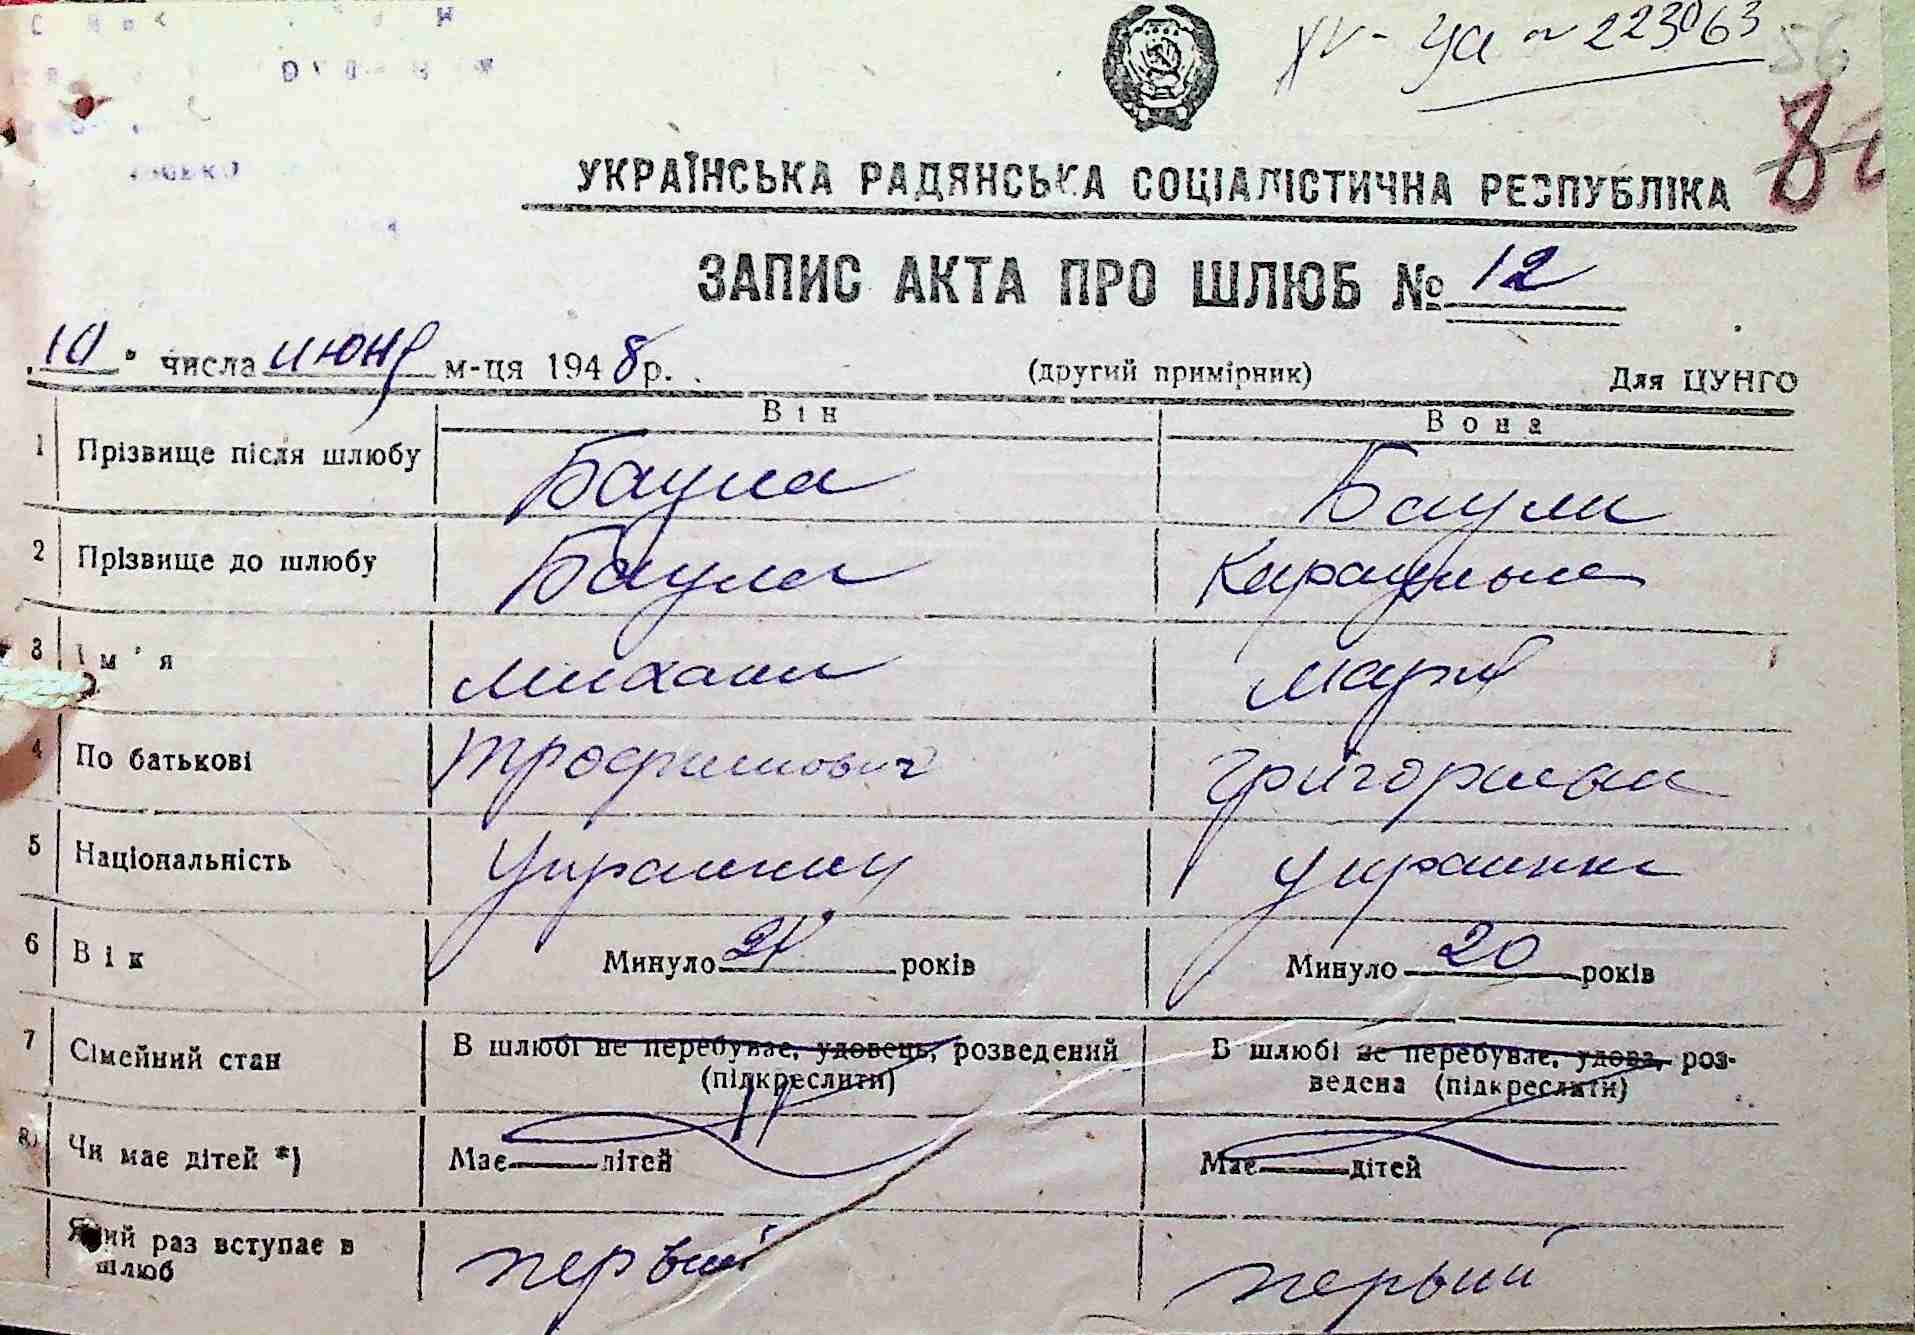 ХV - Уа № 223063
56
УКРАЇНСЬКА РАДЯНСЬКА СОЦІАЛІСТИЧНА РЕСПУБЛІКА
ЗАПИС АКТА ПРО ШЛЮБ № 12
10 " числа июня м-ця 1948 р. (другий примірник) Для ЦУНГО
Він Вона
1 Прізвище після шлюбу Баула Баула
2 Прізвище до шлюбу Баула
3 Ім'я Михаил Мария
4 По батькові Трофимович Григорьевна
5 Національність Украинец Украинка
6 Вік Минуло 21 років Минуло 20 років
7 Сімейний стан В шлюбі не перебуває, удовець, розведений В шлюбі не перебуває, удова, роз-
(підкреслити) ведена (підкреслити)
8 Чи має дітей *) Має дітей Має дітей
Який раз вступає в первый первый
шлюб